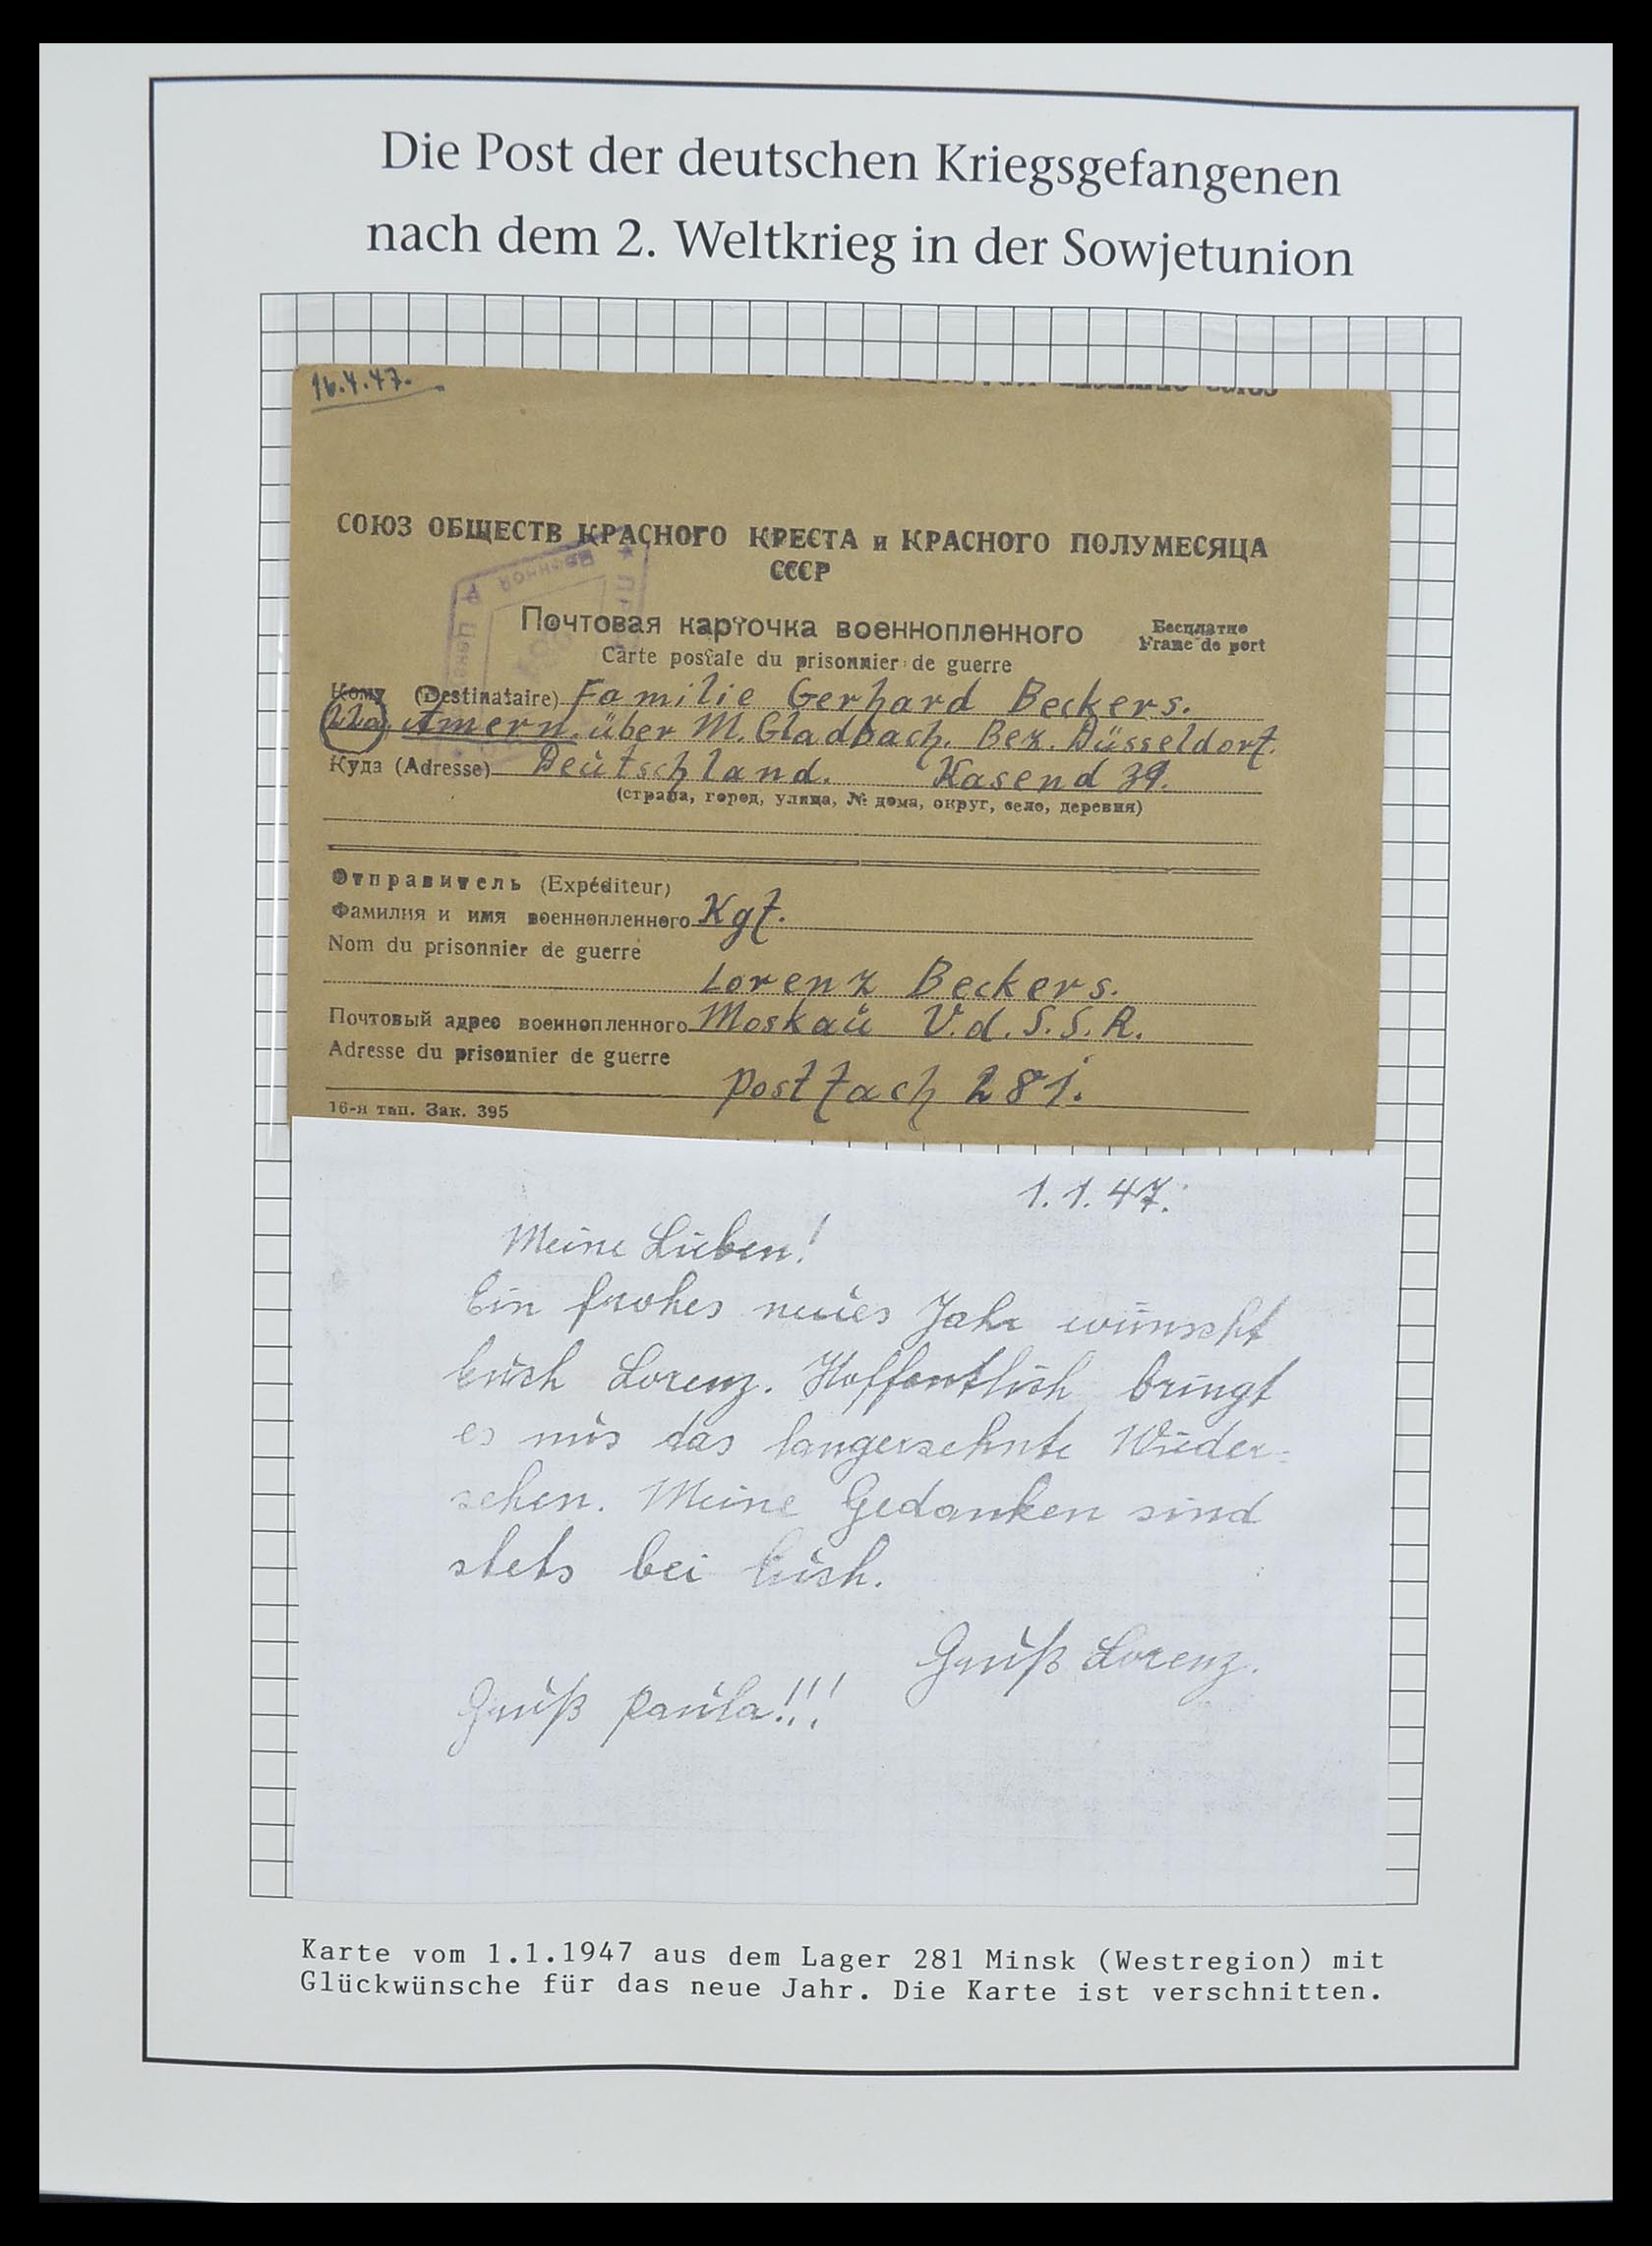 Die Post der deutschen Kriegsgefangenen
nach dem 2. Weltkrieg in der Sowjetunion
16.4.47.
СОЮЗ ОБЩЕСТВ КРАСНОГО КРЕСТА и КРАСНОГО ПОЛУМЕСЯЦА
СССР
Почтовая карточка военнопленного
Бесплатно
Carte postale du prisonnier de guerre
Franc de port
Кому (Destinataire) Familie Gerhard Beckers.
22a Amern. über M. Gladbach. Bez. Düsseldorf.
Куда (Adresse) Deutschland. Kasend 39.
(страна, город, улица, № дома, округ, село, деревня)
Отправитель (Expéditeur)
Фамилия и имя военнопленного Kgf.
Nom du prisonnier de guerre
Lorenz Beckers.
Почтовый адрес военнопленного Moskau V.d.S.S.R.
Adresse du prisonnier de guerre
Postfach 281.
16-я тип. Зак. 395
1.1.47.
Meine Lieben!
Ein frohes neues Jahr wünscht
Euch Lorenz. Hoffentlich bringt
es uns das langersehnte Wieder-
sehen. Meine Gedanken sind
stets bei Euch.
Gruß Lorenz.
Gruß Paula!!!
Karte vom 1.1.1947 aus dem Lager 281 Minsk (Westregion) mit
Glückwünsche für das neue Jahr. Die Karte ist verschnitten.